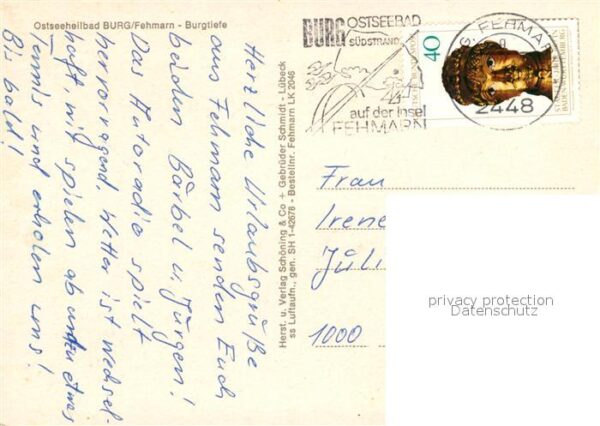 Ostseeheilbad BURG/Fehmarn - Burgtiefe
Herzliche Urlaubsgrüße
aus Fehmarn senden Euch
beiden Bärbel u. Jürgen!
Das Autoradio spielt
hervorragend. Wetter ist wechsel-
haft, wir spielen ab und zu etwas
Tennis und erholen uns!
Bis bald!
Herst. u. Verlag Schöning & Co + Gebrüder Schmidt - Lübeck
ss Luftaufn., gen. SH 1-42678 - Bestellnr. Fehmarn LK 2046
BURG OSTSEEBAD
SÜDSTRAND
auf der Insel
FEHMARN
40
FEHMAR
2448
Frau
Irene
Jüli
1000
privacy protection
Datenschutz